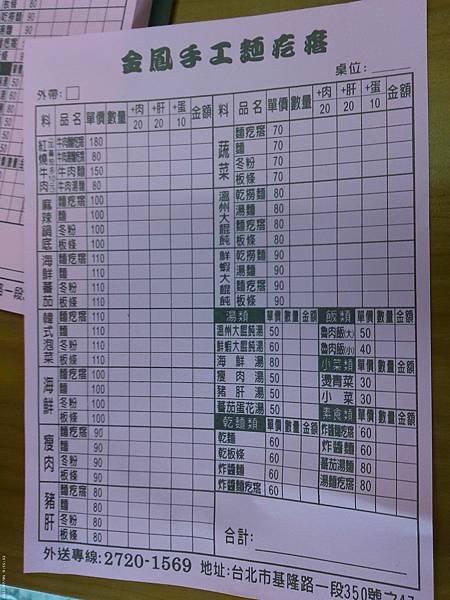 金鳳手工麵疙瘩
桌位:
外帶:
料 品名 單價 數量 +肉20 +肝20 +蛋10 金額
紅燒牛肉
牛肉麵疙瘩 180
牛肉湯麵疙瘩 80
牛肉麵 150
牛肉湯麵 80
麻辣鍋底
麵疙瘩 100
麵 100
冬粉 100
板條 100
海鮮蕃茄
麵疙瘩 110
麵 110
冬粉 110
板條 110
韓式泡菜
麵疙瘩 110
麵 110
冬粉 110
板條 110
海鮮
麵疙瘩 100
麵 100
冬粉 100
板條 100
瘦肉
麵疙瘩 90
麵 90
冬粉 90
板條 90
豬肝
麵疙瘩 80
麵 80
冬粉 80
板條 80
料 品名 單價 數量 +肉20 +肝20 +蛋10 金額
蔬菜
麵疙瘩 70
麵 70
冬粉 70
板條 70
溫州大餛飩
乾撈麵 80
湯麵 80
麵疙瘩 80
板條 80
鮮蝦大餛飩
乾撈麵 90
湯麵 90
麵疙瘩 90
板條 90
湯類 單價 數量 金額
溫州大餛飩湯 50
鮮蝦大餛飩湯 60
海鮮湯 80
瘦肉湯 50
豬肝湯 50
蕃茄蛋花湯 50
乾麵類 單價 數量 金額
乾麵 60
乾板條 60
炸醬麵 60
炸醬麵疙瘩 60
飯類 單價 數量 金額
魯肉飯(大) 50
魯肉飯(小) 40
小菜類 單價 數量 金額
燙青菜 30
小菜 30
素食類 單價 數量 金額
炸醬麵疙瘩 60
炸醬麵 60
蕃茄湯麵 80
湯麵疙瘩 80
合計:
外送專線:2720-1569 地址:台北市基隆路一段350號之